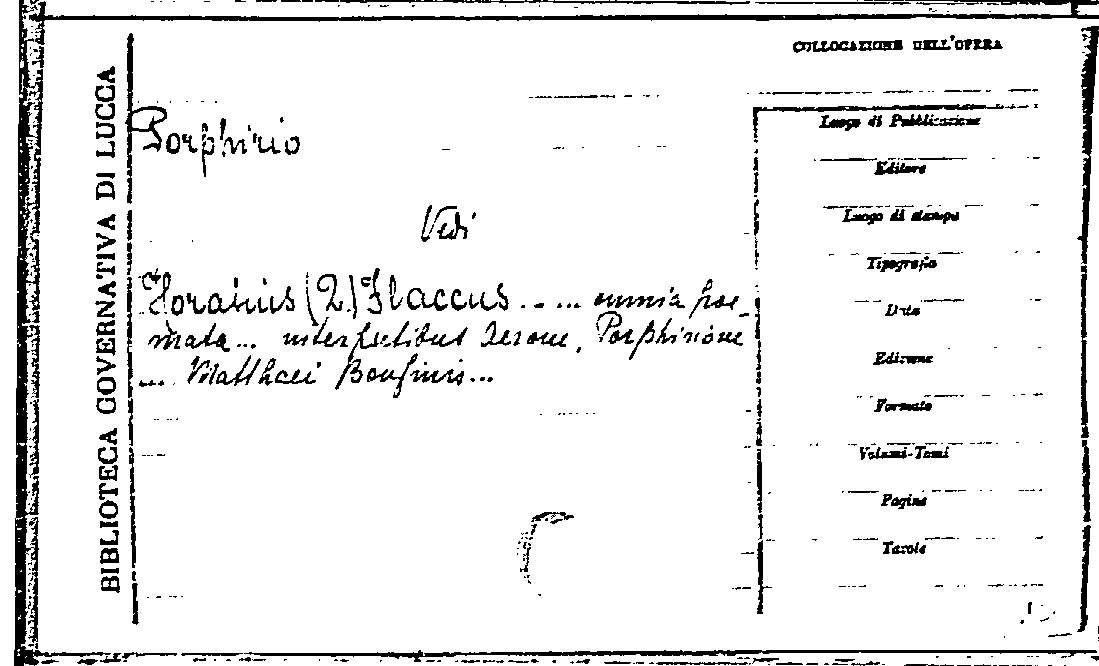 BIBLIOTECA GOVERNATIVA DI LUCCA
COLLOCAZIONE DELL'OPERA
Porphirio
Vedi
Horatius (2.) Flaccus ..... omnia poe-
mata... interpretibus Acrone, Porphirione
... Matthaei Bonfinis...
Luogo di Pubblicazione
Editore
Luogo di stampa
Tipografia
Data
Edizione
Formato
Volumi-Tomi
Pagine
Tavole